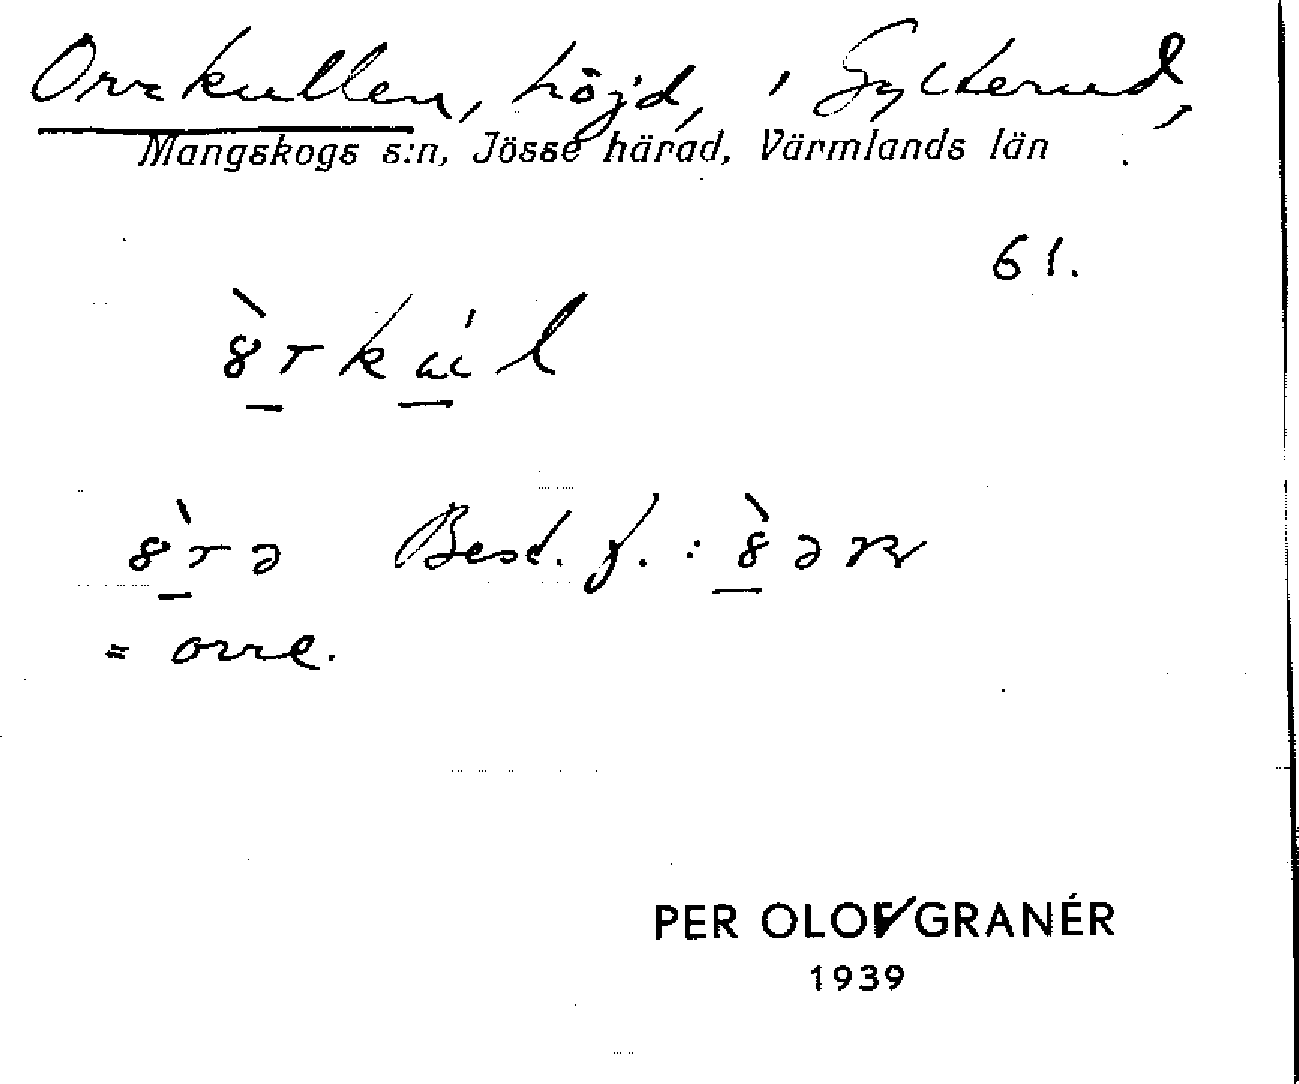 Orrkullen, höjd, i Gylterud,
Mangskogs s:n, Jösse härad, Värmlands län
61.
Best. f. :
= orre.
PER OLOF GRANÉR
1939